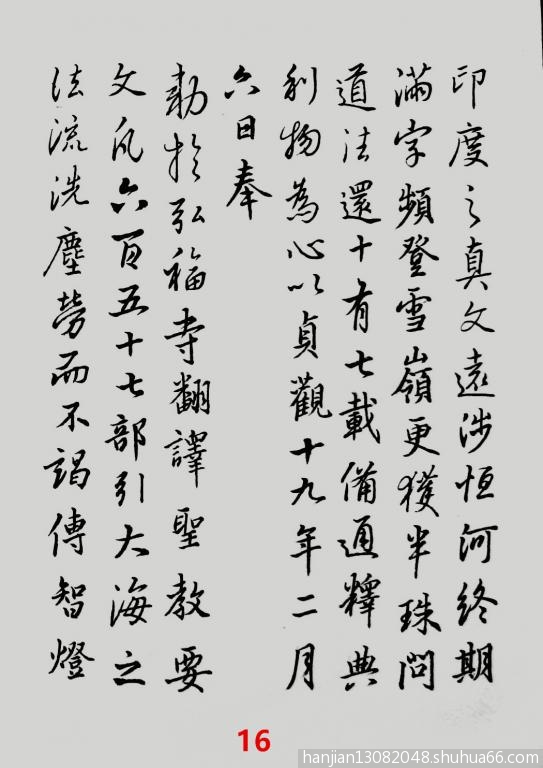 印度之真文遠涉恒河終期
滿字頻登雪嶺更獲半珠問
道法還十有七載備通釋典
利物為心以貞觀十九年二月
六日奉
勅於弘福寺翻譯聖教要
文凡六百五十七部引大海之
法流洗塵勞而不竭傳智燈
16
hanjian13082048.shuhua66.com